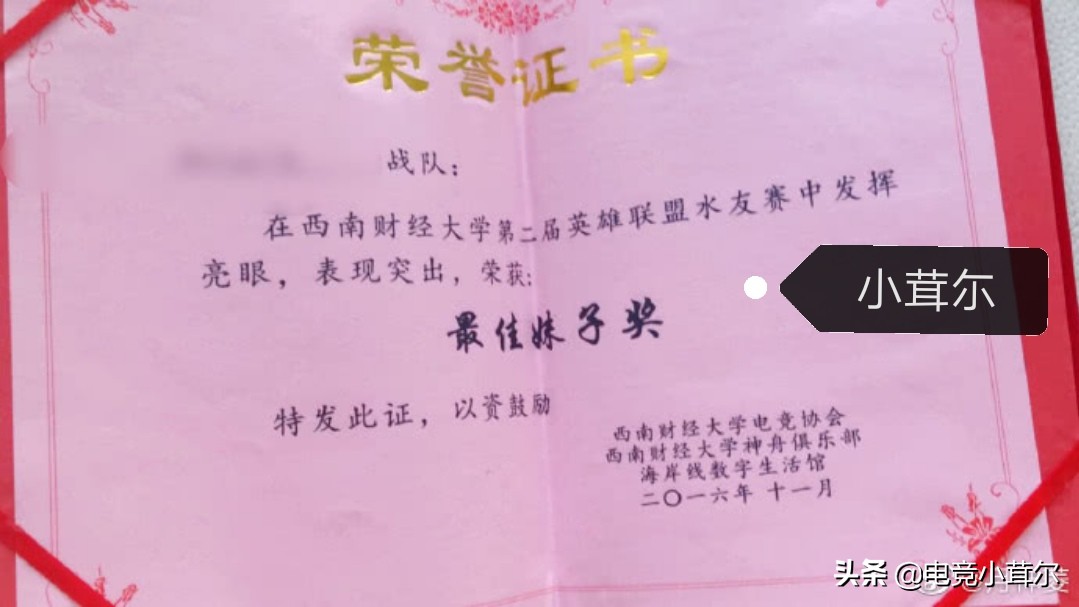 荣誉证书
战队：
在西南财经大学第二届英雄联盟水友赛中发挥
亮眼，表现突出，荣获：
小茸尔
最佳妹子奖
特发此证，以资鼓励
西南财经大学电竞协会
西南财经大学神舟俱乐部
海岸线数字生活馆
二〇一六年 十一月
头条 @电竞小茸尔